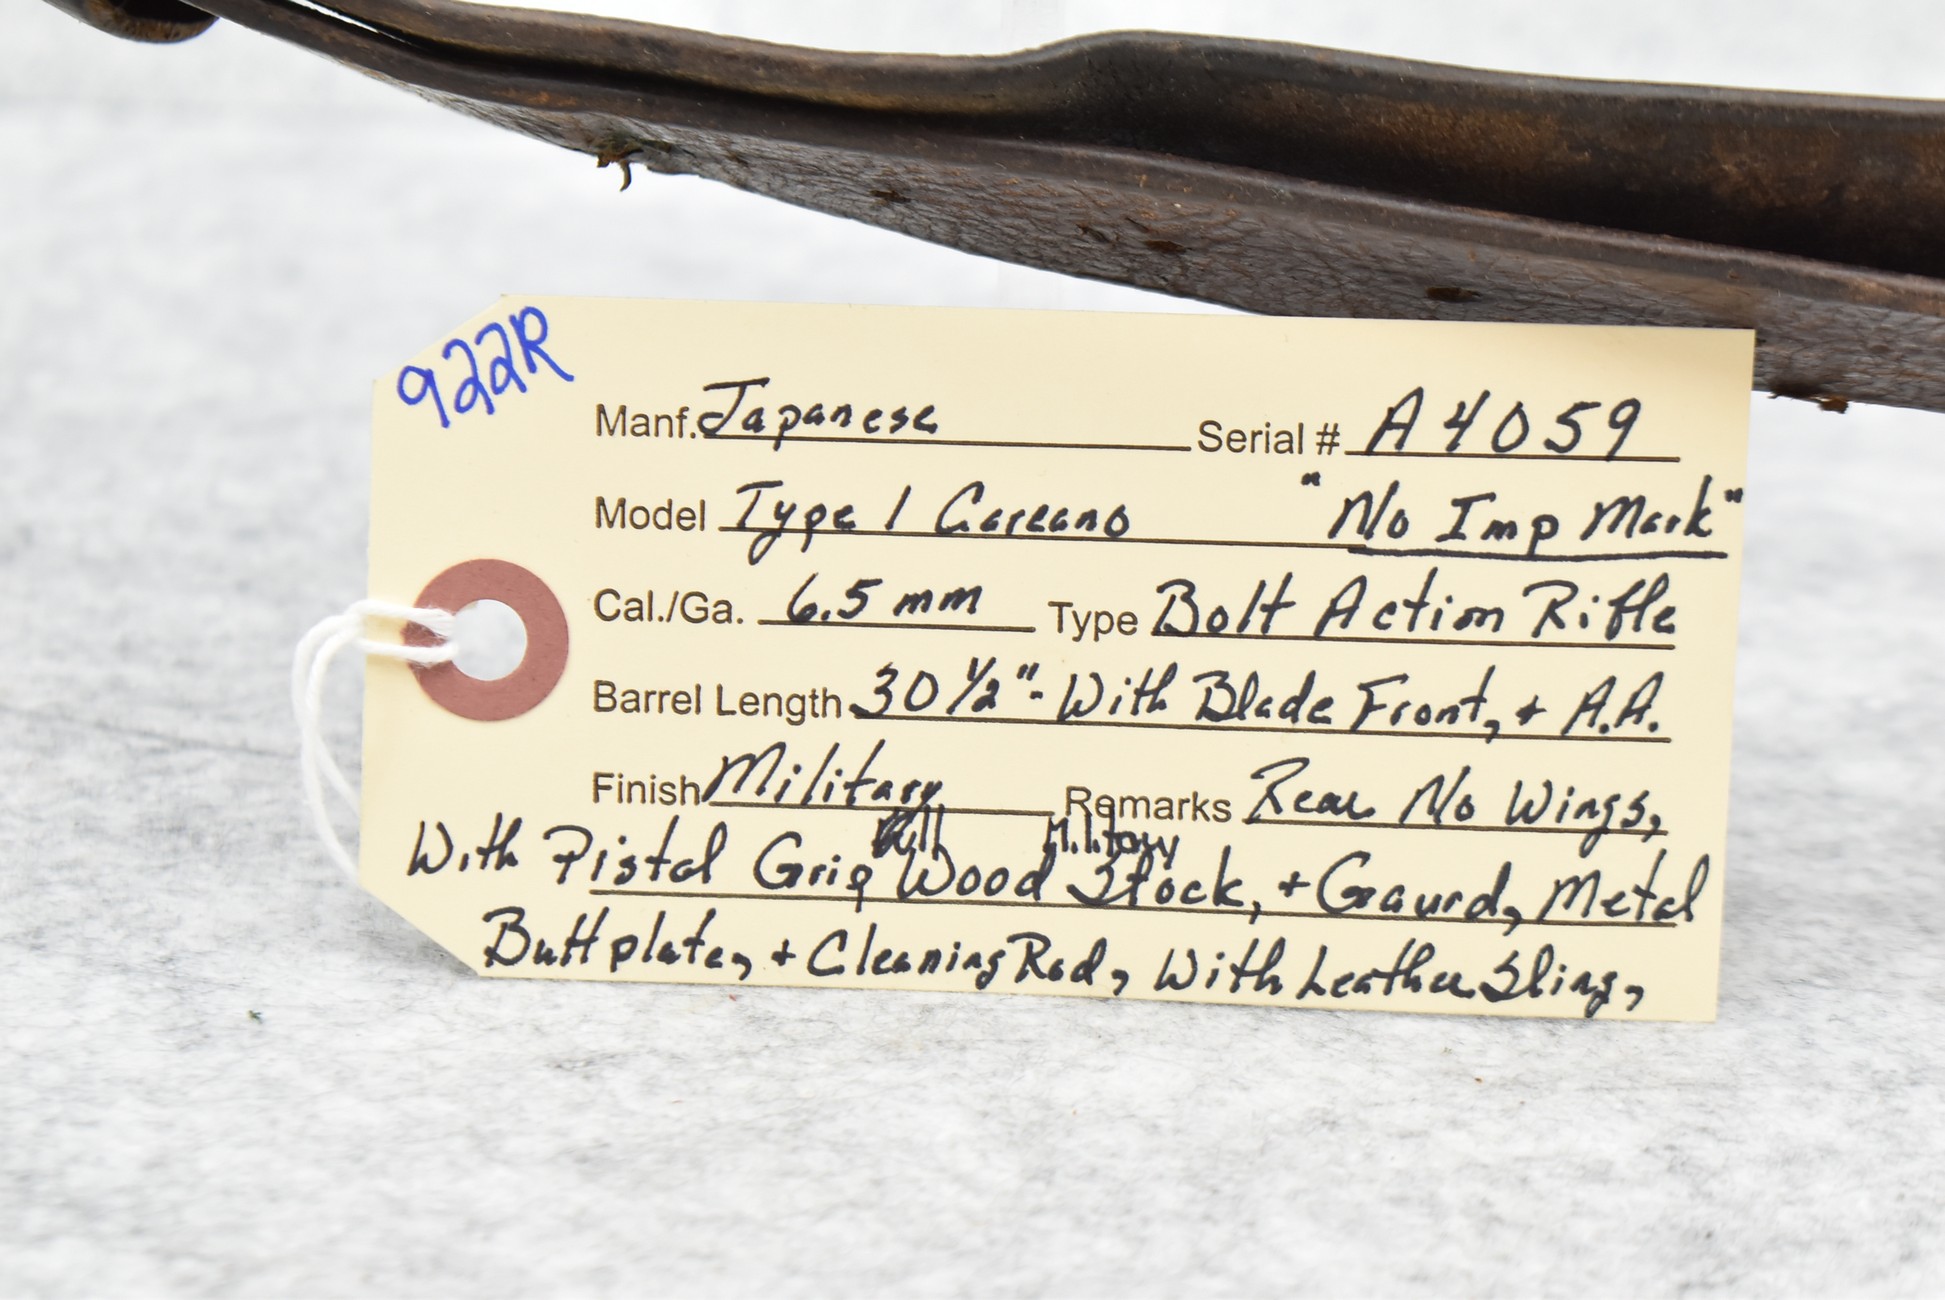 922R
Manf. Japanese Serial # A4059
Model Type 1 Carcano "No Imp Mark"
Cal./Ga. 6.5 mm Type Bolt Action Rifle
Barrel Length 30 1/2"- With Blade Front, + A.A.
Finish Military Remarks Rear No Wings,
Full Military
With Pistol Grip Wood Stock, + Gaurd, Metal
Buttplate, + Cleaning Rod, With Leather Sling,